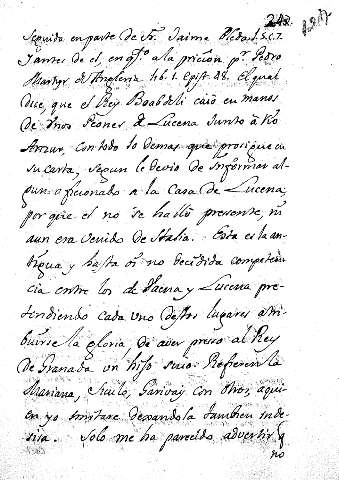 242 1217
Seguida en parte de Fr. Jaime Bleda l. 5. c. 7.
Y antes de el, en q.to a la pricion p.r Pedro
Martyr de Angleria lib. 1. Epist. 48. El qual
dice, que el Rey Boabdeli caio en manos
de Unos Peones de Lucena Junto à Rio
con todo lo demas que prosigue en
su carta, segun le devio de Informar al-
gun aficionado a la Casa de Lucena,
porque el no se halló presente, ni
aun era venido de Italia. Esta es la an-
tigua y hasta oi no decidida competen-
cia entre los de Baena y Lucena pre-
tendiendo cada uno destos lugares atri-
buirse la gloria de aver presso al Rey
de Granada un hijo suio. Refieren la
Mariana, Siculo, Garivay con otros, aqui-
en yo imitare dexandola tambien inde-
sisa. Solo me ha parecido advertir q
no